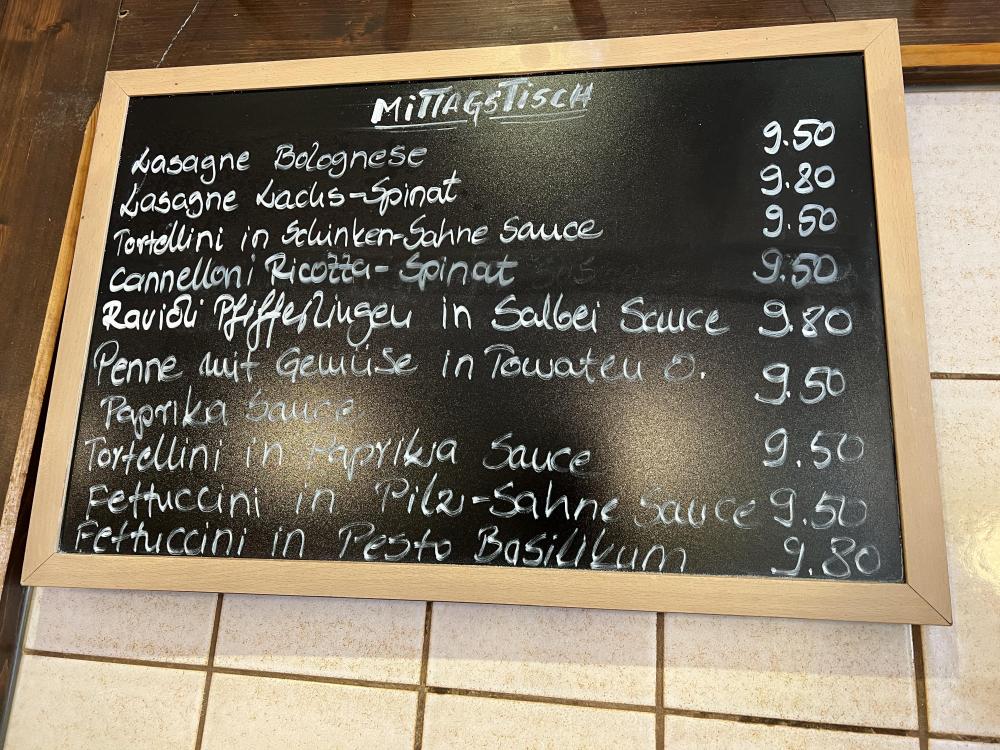 MITTAGSTISCH
Lasagne Bolognese 9.50
Lasagne Lachs-Spinat 9.80
Tortellini in Schinken-Sahne Sauce 9.50
Cannelloni Ricotta-Spinat 9.50
Ravioli Pfifferlingen in Salbei Sauce 9.80
Penne mit Gemüse in Tomaten o. 9.50
Paprika Sauce
Tortellini in Paprika Sauce 9.50
Fettuccini in Pilz-Sahne Sauce 9.50
Fettuccini in Pesto Basilikum 9.80